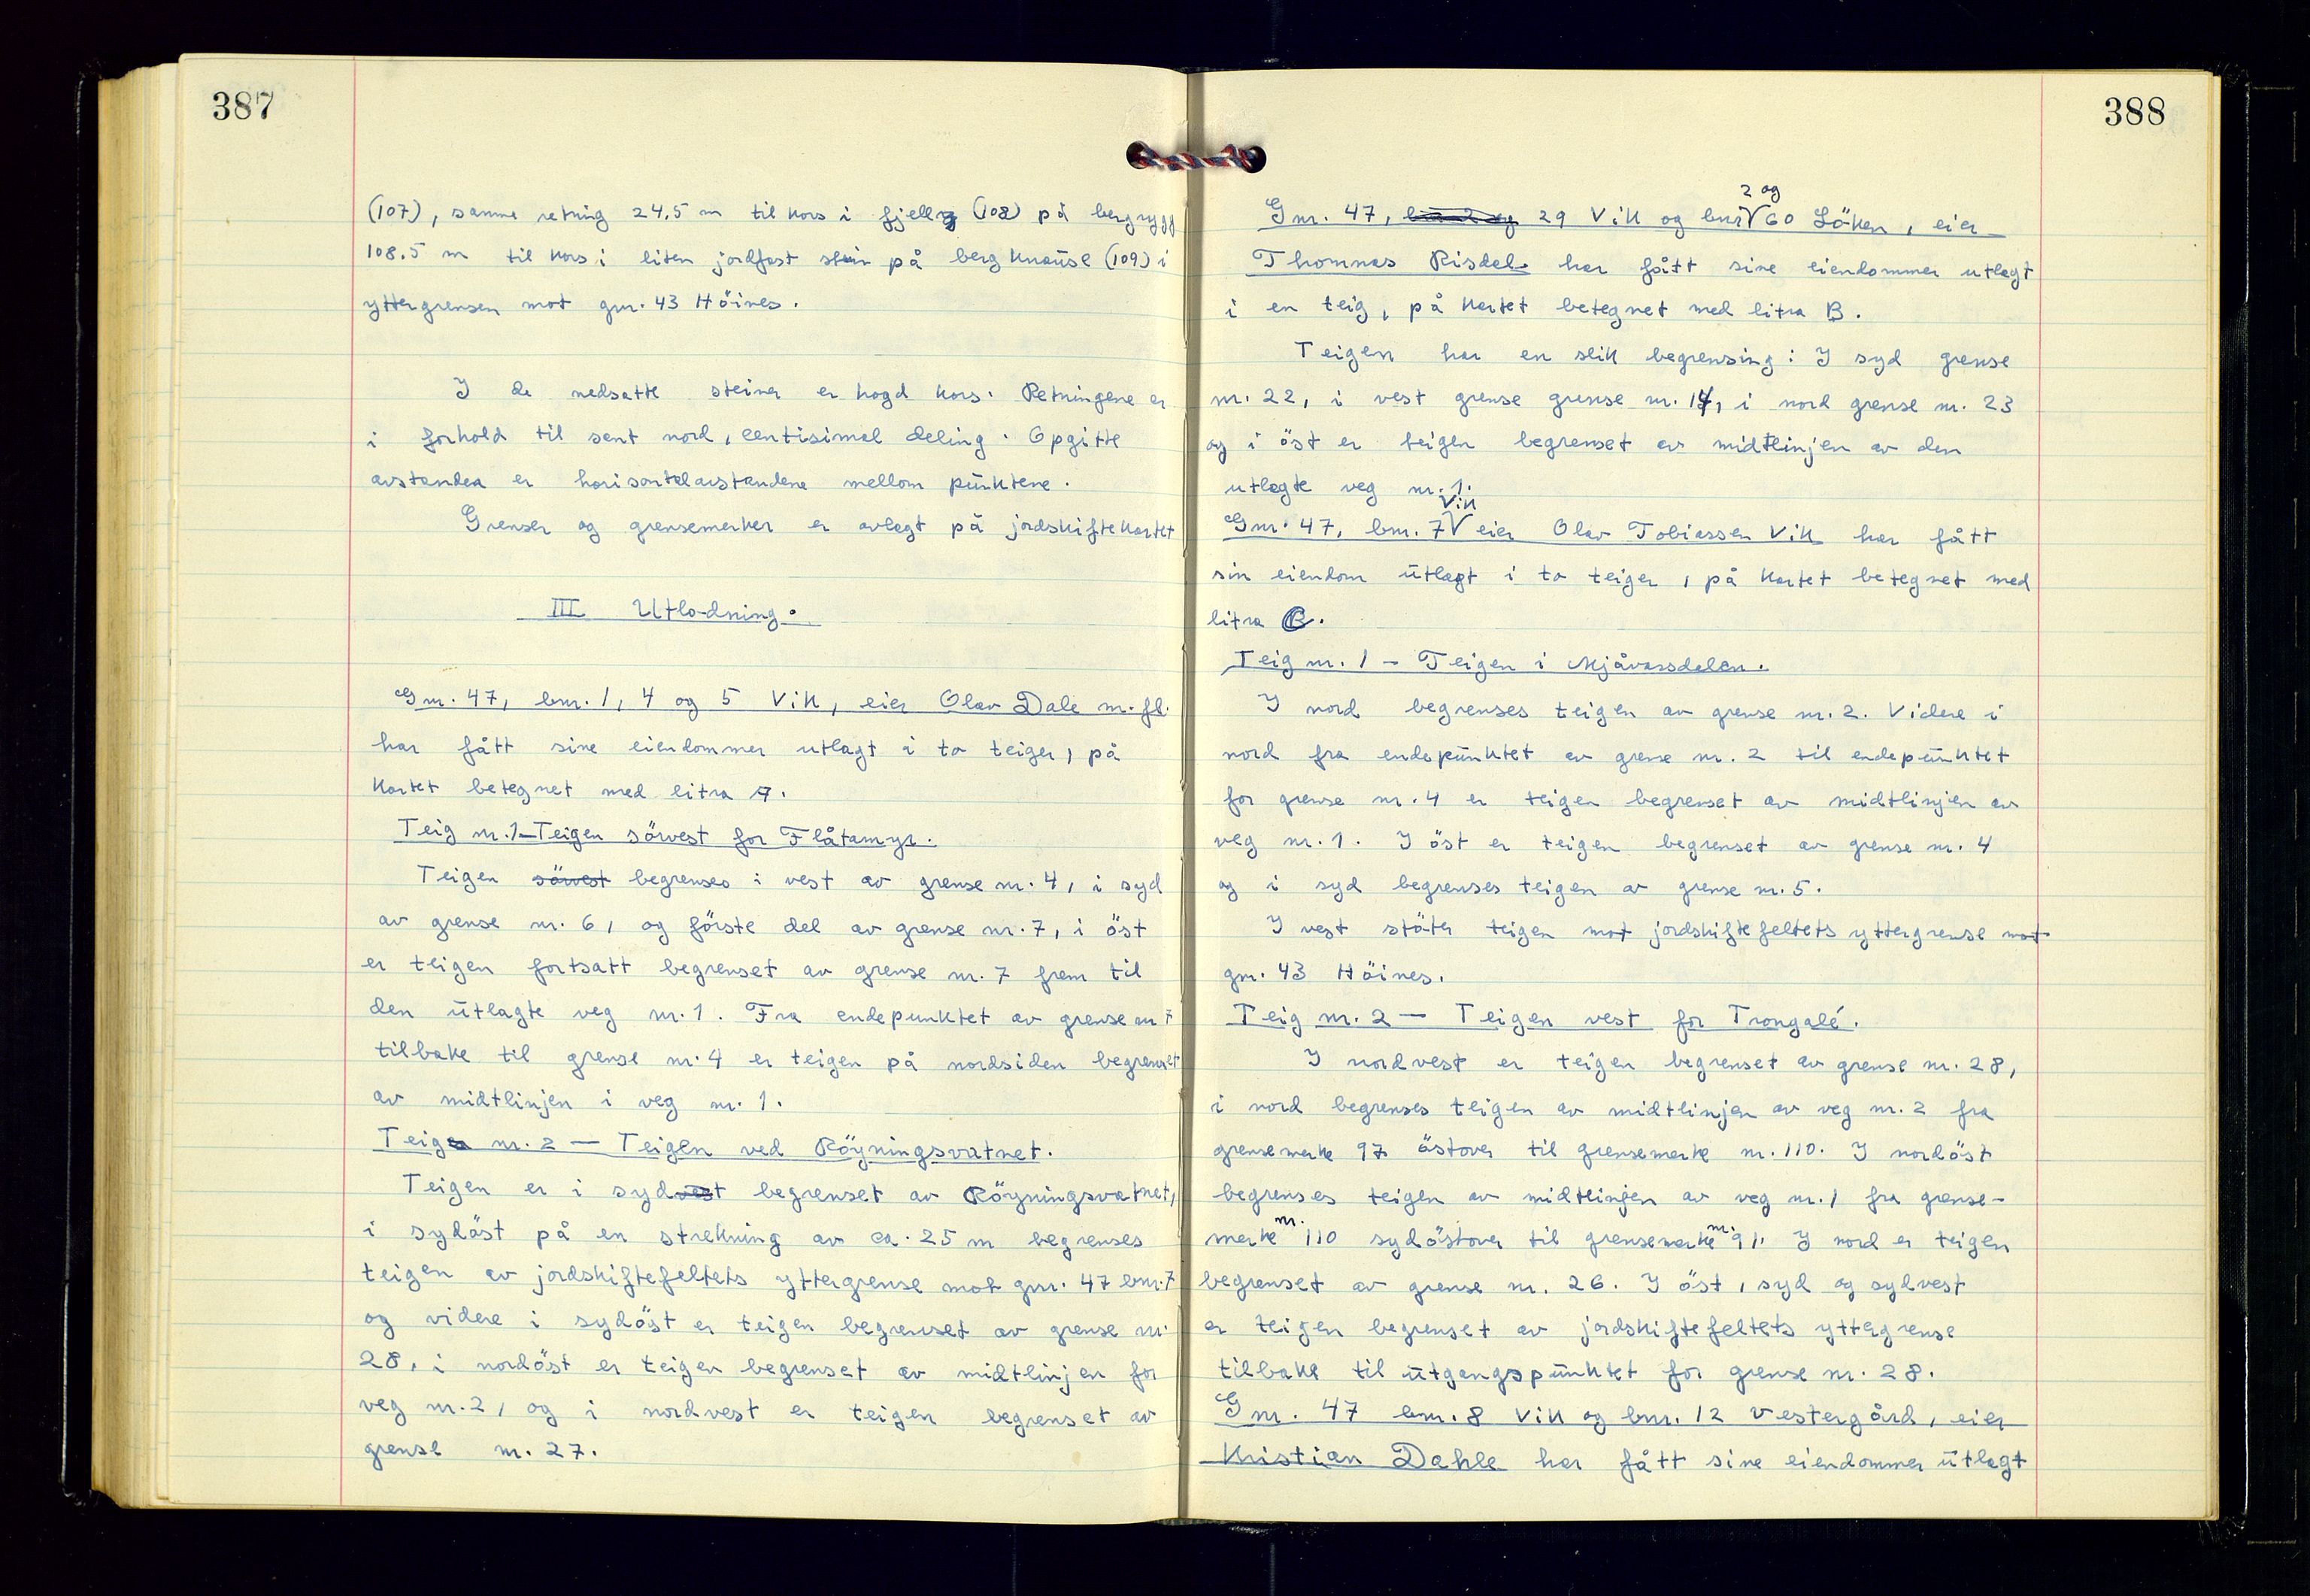 387
(107), samme retning 24.5 m til kors i fjell (108) på bergrygg
108.5 m til kors i liten jordfast stein på berg knause (109) i
yttergrensen mot gnr. 43 Höines.
I de nedsatte steiner er hogd kors. Retningene er
i forhold til sant nord, centisimal deling. Opgitte
avstander er horisontalavstandene mellom punktene.
Grenser og grensemerker er avlagt på jordskiftekartet
III Utlodning.
Gnr. 47, bnr. 1, 4 og 5 Vik, eier Olav Dale m. fl.
har fått sine eiendommer utlagt i to teiger, på
kartet betegnet med litra A.
Teig nr. 1 – Teigen sörvest for Flåtamyr.
Teigen sörvest begrenses i vest av grense nr. 4, i syd
av grense nr. 6, og förste del av grense nr. 7, i öst
er teigen fortsatt begrenset av grense nr. 7 frem til
den utlagte veg nr. 1. Fra endepunktet av grense nr 7
tilbake til grense nr. 4 er teigen på nordsiden begrenset
av midtlinjen i veg nr. 1.
Teig nr. 2 — Teigen ved Röyningsvatnet.
Teigen er i sydvest begrenset av Röyningsvatnet,
i sydöst på en strekning av ca. 25 m begrenses
teigen av jordskiftefeltets yttergrense mot gnr. 47 bnr. 7
og videre i sydöst er teigen begrenset av grense nr
28, i nordöst er teigen begrenset av midtlinjen for
veg nr. 2, og i nordvest er teigen begrenset av
grense nr. 27.
388
2 og
Gnr. 47, bnr 2 og 29 Vik og bnr V 60 Löken, eier
Thomas Risdal har fått sine eiendommer utlagt
i en teig, på kartet betegnet med litra B.
Teigen har en slik begrensing: I syd grense
nr. 22, i vest grense grense nr. 14, i nord grense nr. 23
og i öst er teigen begrenset av midtlinjen av den
utlagte veg nr. 1.
Vik
Gnr. 47, bnr. 7 V eier Olav Tobiassen Vik har fått
sin eiendom utlagt i to teiger, på kartet betegnet med
litra C.
Teig nr. 1 – Teigen i Mjåvassdalen.
I nord begrenses teigen av grense nr. 2. Videre i
nord fra endepunktet av grense nr. 2 til endepunktet
for grense nr. 4 er teigen begrenset av midtlinjen av
veg nr. 1. I öst er teigen begrenset av grense nr. 4
og i syd begrenses teigen av grense nr. 5.
I vest stöter teigen mot jordskiftefeltets yttergrense mot
gnr. 43 Höines.
Teig nr. 2 — Teigen vest for Trongalé.
I nordvest er teigen begrenset av grense nr. 28,
i nord begrenses teigen av midtlinjen av veg nr. 2 fra
grensemerke 97 östover til grensemerke nr. 110. I nordöst
begrenses teigen av midtlinjen av veg nr. 1 fra grense-
merke nr. 110 sydöstover til grensemerke nr. 91. I nord er teigen
begrenset av grense nr. 26. I öst, syd og sydvest
er teigen begrenset av jordskiftefeltets yttergrense
tilbake til utgangspunktet for grense nr. 28.
Gnr. 47 bnr. 8 Vik og bnr. 12 Vestergård, eier
Kristian Dahle har fått sine eiendommer utlagt